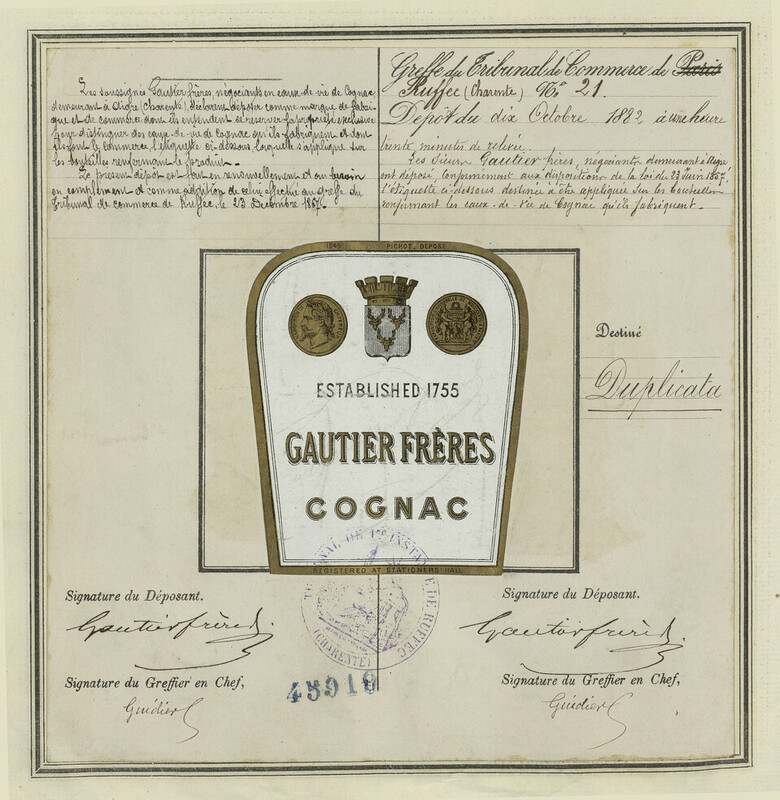 Les soussignés Gautier frères, négociants en eaux de vie de Cognac,
demeurant à Aigre (Charente), déclarent déposer comme marque de fabri-
que et de commerce dont ils entendent se réserver la propriété exclusive
pour distinguer des eaux-de-vie de cognac qu'ils fabriquent et dont
ils font le commerce l'étiquette ci-dessous, laquelle s'applique sur
les bouteilles renfermant le produit.
Le présent dépôt est fait en renouvellement et au besoin
en complément et comme addition de celui effectué au greffe du
Tribunal de commerce de Ruffec, le 23 Décembre 1867.
Greffe du Tribunal de Commerce de Paris
Ruffec (Charente) No. 21.
Dépôt du dix Octobre 1882 à une heure
trente minutes de relevée.
Les Sieurs Gautier frères, négociants demeurant à Aigre
ont déposé, conformément aux dispositions de la loi du 23 Juin 1857,
l'étiquette ci-dessous destinée à être appliquée sur les bouteilles
renfermant les eaux-de-vie de Cognac qu'ils fabriquent.
PICHOT, DEPOSE
ESTABLISHED 1755
GAUTIER FRÈRES
COGNAC
REGISTERED AT STATIONERS' HALL
Destiné
Duplicata
TRIBUNAL DE 1re INSTANCE DE RUFFEC
(CHARENTE)
Signature du Déposant.
Gautier frères
Signature du Greffier en Chef,
Guidier
45916
Signature du Déposant.
Gautier frères
Signature du Greffier en Chef,
Guidier